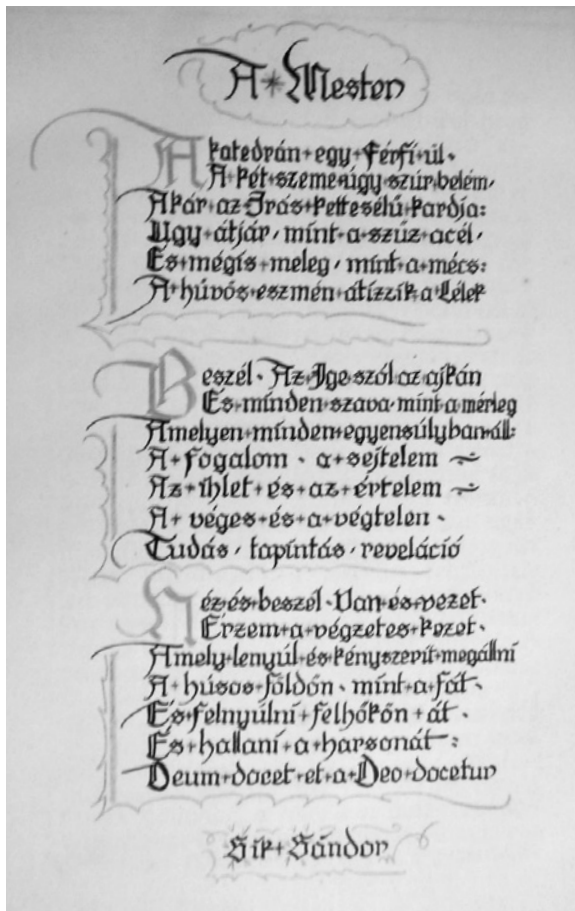 A Mester
A katedrán egy férfi ül.
A két szeme úgy szúr belém,
Akár az Írás kettesélű kardja:
Ugy átjár, mint a szűz acél,
És mégis meleg, mint a mécs:
A húvös eszmén átizzik a Lélek
Beszél. Az Ige szól az ajkán
És minden szava mint a mérleg
Amelyen minden egyensúlyban áll:
A fogalom. a sejtelem
Az ihlet és az értelem
A véges és a végtelen.
Tudás, tapintás, reveláció
Néz és beszél. Van és vezet.
Érzem a végzetes kezet.
Amely lenyúl és kényszerít megállni
A húsos földön. mint a fát.
És felnyúlni felhőkön át.
És hallani a harsonát:
Deum docet et a Deo docetur
Sík Sándor